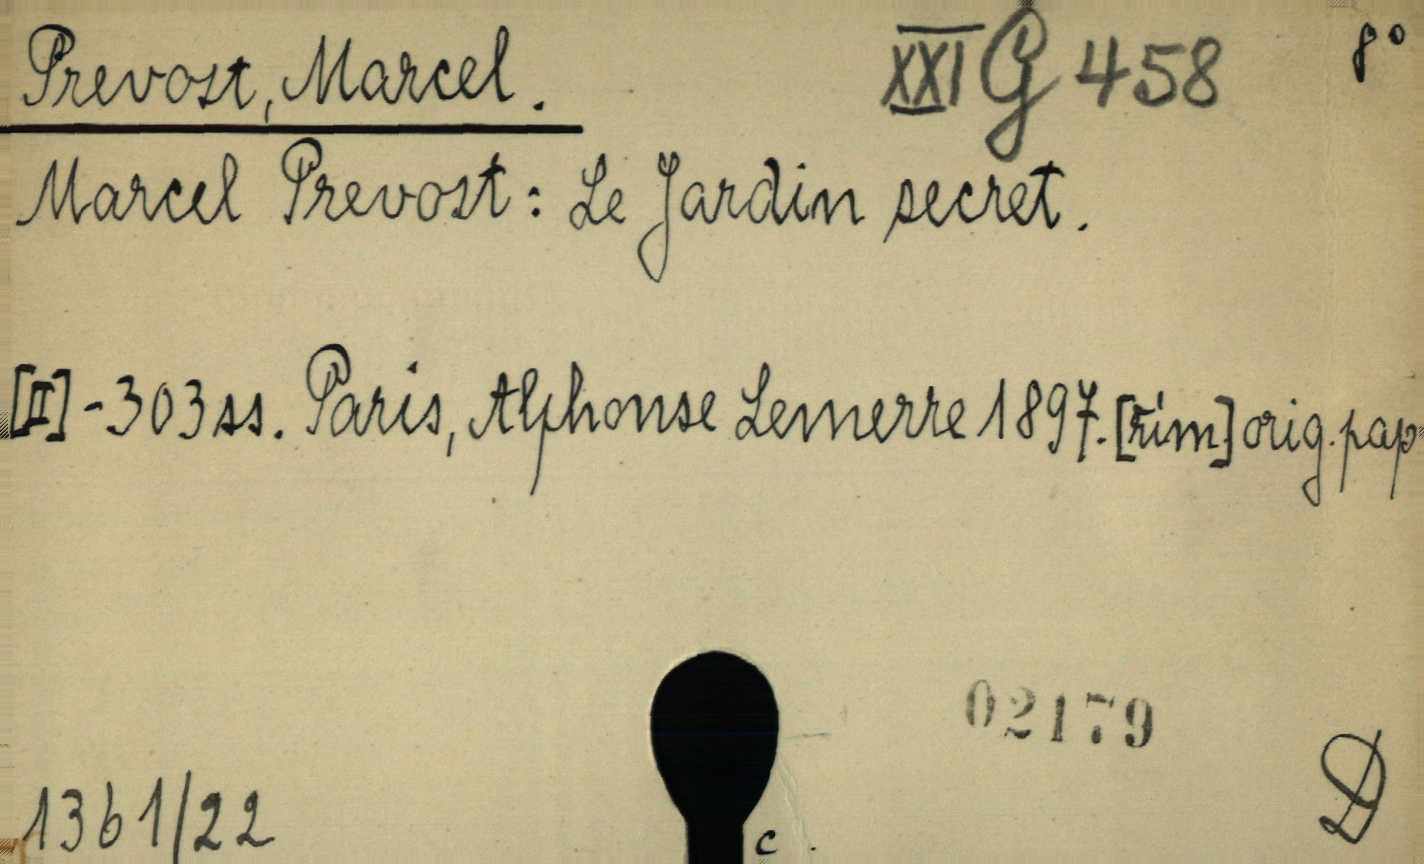 Prevost, Marcel. XXI G 458 8°
Marcel Prevost: Le Jardin secret.
[II]-303ss. Paris, Alphonse Lemerre 1897. [rim] orig. pap
02179
D
1361/22
c.